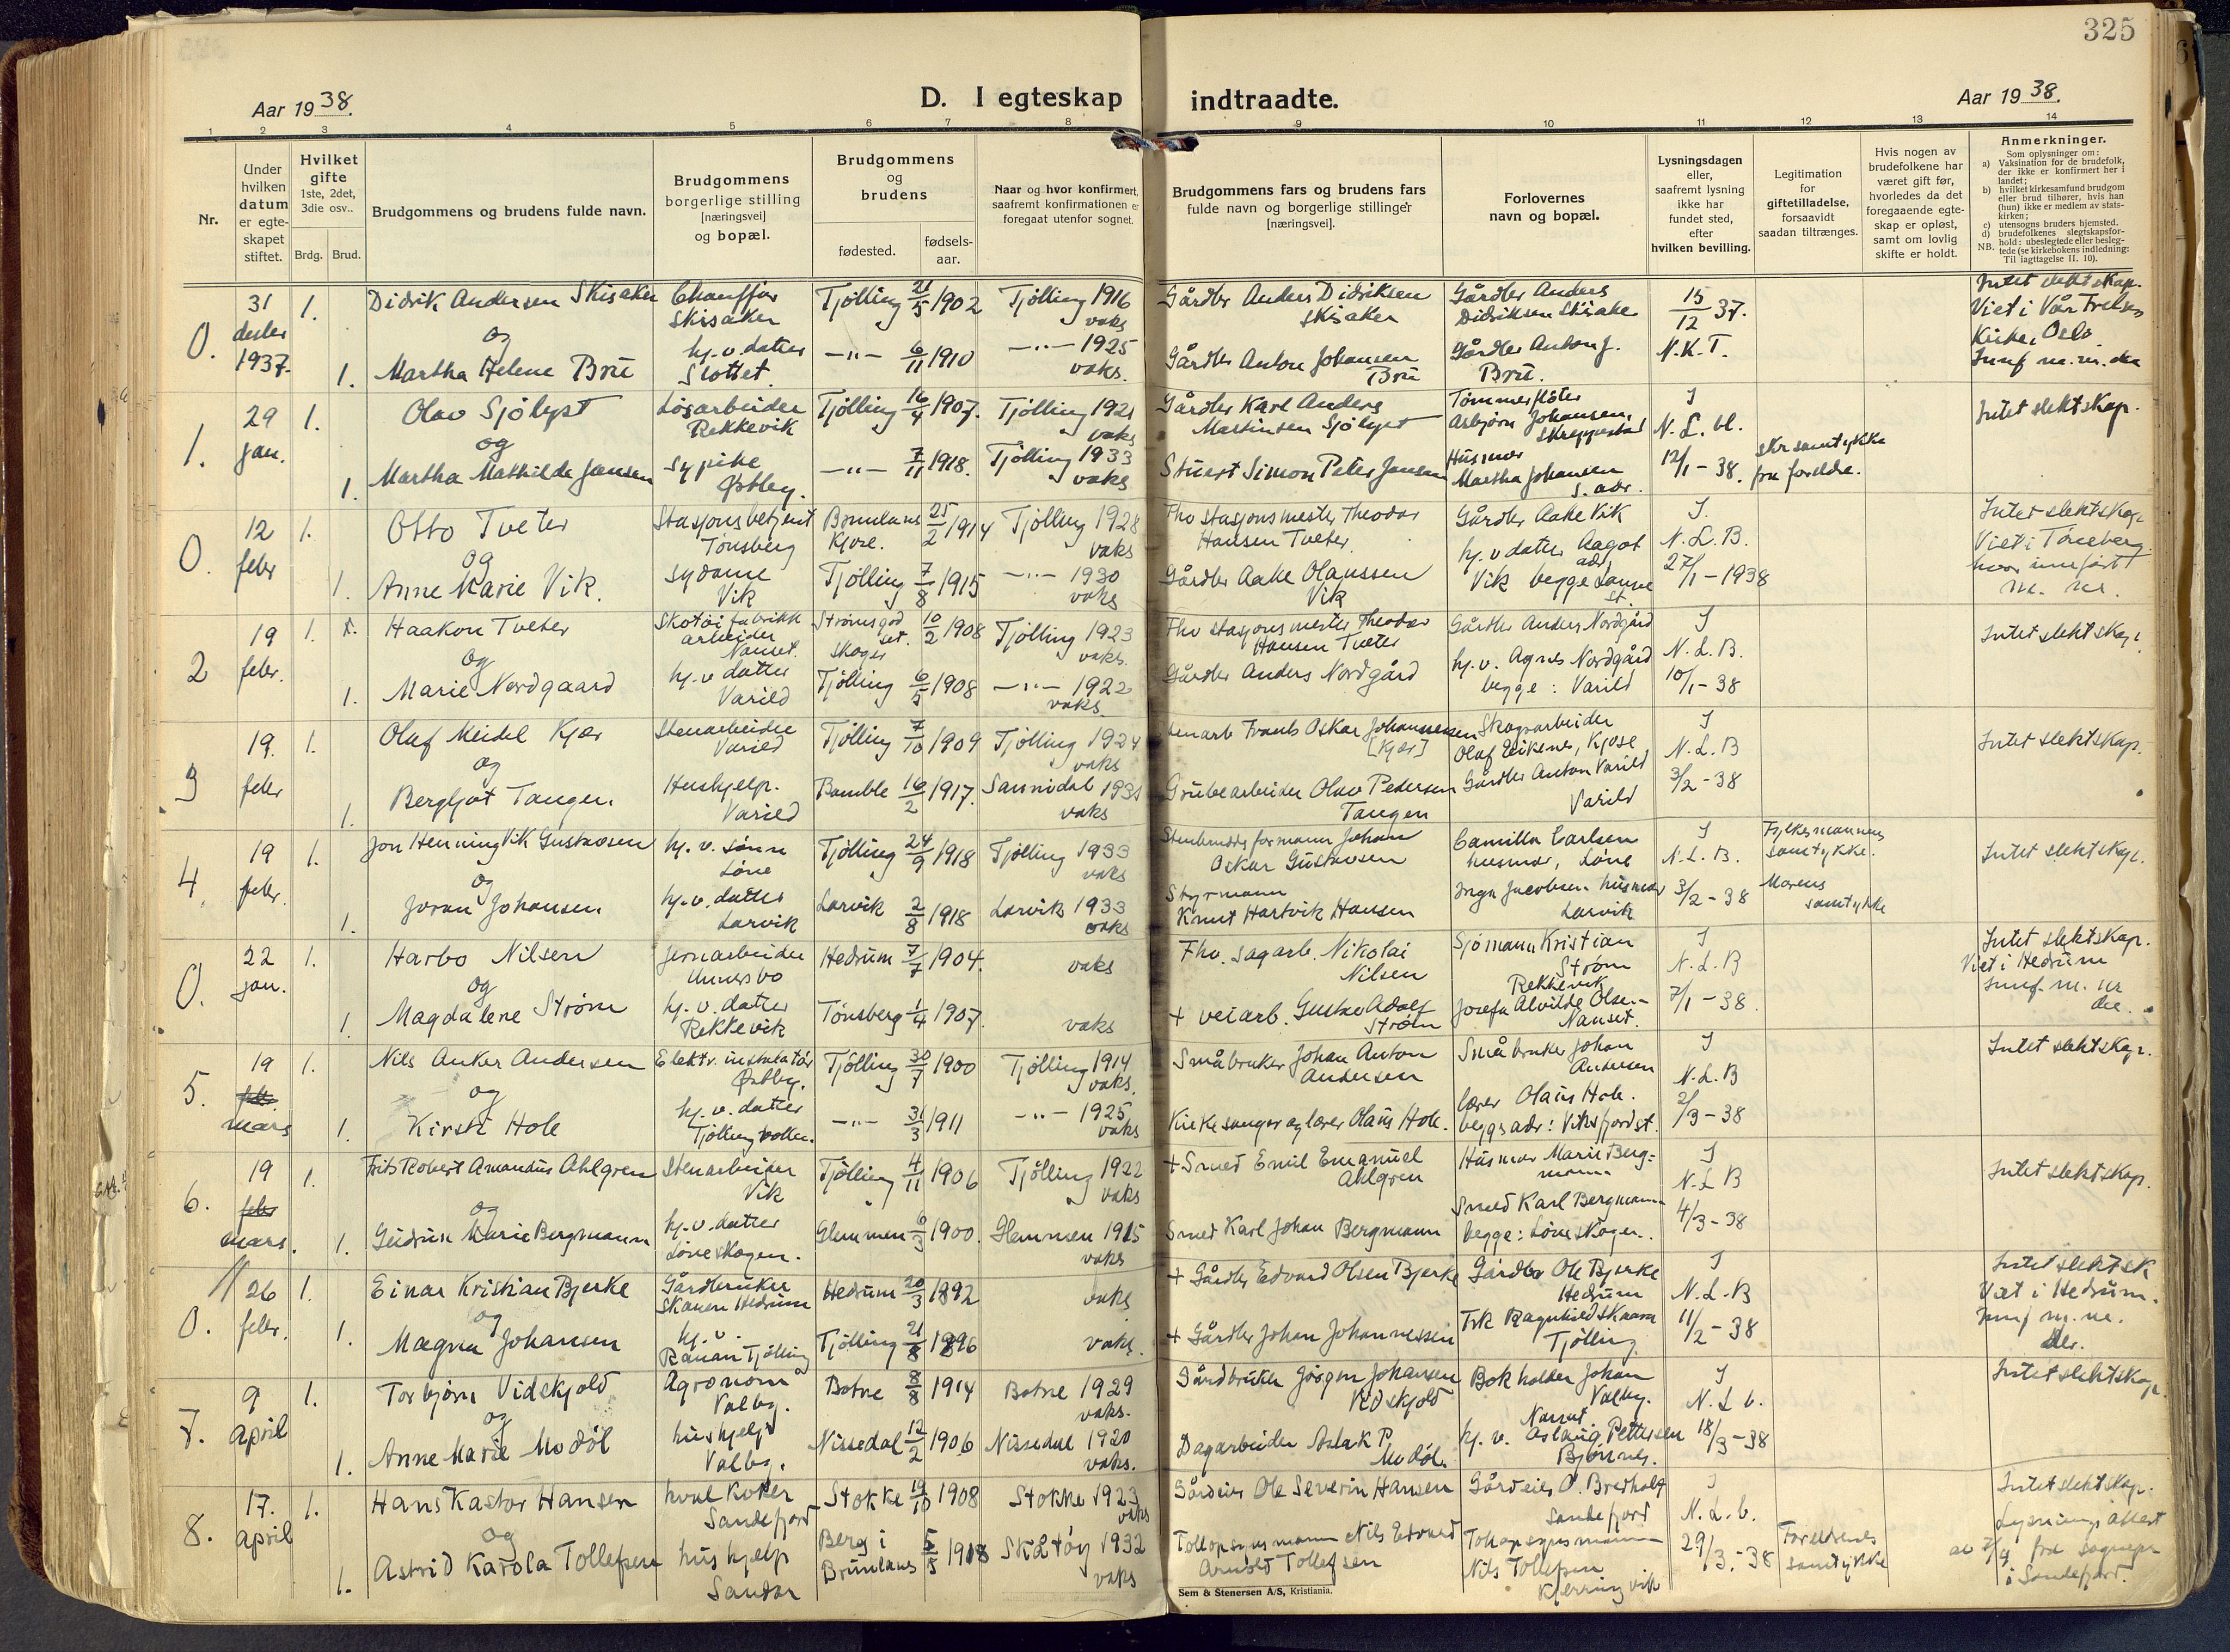 325
Aar 19 38.
D. I egteskap indtraadte.
Aar 19 38.
1 2 3 4 5 6 7 8 9 10 11 12 13 14
Nr.
Under hvilken datum er egteskapet stiftet.
Hvilket gifte 1ste, 2det, 3die osv..
Brdg. Brud.
Brudgommens og brudens fulde navn.
Brudgommens borgerlige stilling [næringsvei] og bopæl.
Brudgommens og brudens
fødested. fødsels-aar.
Naar og hvor konfirmert, saafremt konfirmationen er foregaat utenfor sognet.
Brudgommens fars og brudens fars fulde navn og borgerlige stillinger [næringsvei].
Forlovernes navn og bopæl.
Lysningsdagen eller, saafremt lysning ikke har fundet sted, efter hvilken bevilling.
Legitimation for giftetilladelse, forsaavidt saadan tiltrænges.
Hvis nogen av brudefolkene har været gift før, hvorledes da det foregaaende egteskap er opløst, samt om lovlig skifte er holdt.
Anmerkninger.
Som oplysninger om:
a) Vaksination for de brudefolk, der ikke er konfirmert her i landet;
b) hvilket kirkesamfund brudgom eller brud tilhører, hvis han (hun) ikke er medlem av statskirken;
c) utensogns bruders hjemsted.
d) brudefolkenes slegtskapsforhold: ubeslegtede eller beslegtede (se kirkebokens indledning:
NB. Til iagttagelse II. 10).
0. 31 desbr 1937. 1. Didrik Andersen Skisaker Chauffør Skisaker Tjølling 21/5 1902 Tjølling 1916 vaks Gårdbr Anders Didriksen Skisaker Gårdbr Anders Didriksen Skisaker 15/12 37. Intet slektskap.
og
1. Martha Helene Brú hj.v. datter Slottet. —"— 6/11 1910 —"— 1925 vaks. Gårdbr Anton Johansen Brú Gårdbr Anton J. Brú. N.K.T. Viet i Vår Frelsers Kirke, Oslo
1. 29 jan. 1. Olav Sjølyst Løsarbeider Rekkevik Tjølling 16/4 1907. Tjølling 1921 vaks Gårdbr Karl Anders Martinsen Sjølyst Tømmerfløter Asbjørn Johansen, J N.L.bl. Intet slektskap.
og
1. Martha Mathilde Jansen Sypike Østby. —"— 7/11 1918. Tjølling 1933 vaks Stuert Simon Peter Jansen Husmor Martha Johansen s. adr. 12/1 - 38. skr samtykke fra foreldre.
0. 12 febr 1. Otto Tveter Stasjonsbetjent Tønsberg Brunlanes Kjose. 25/2 1914 Tjølling 1928 vaks Fhv stasjonsmester Theodor Hansen Tveter. Gårdbr Aake Vik J. N.L.B. Intet slektskap.
og
1. Anne Marie Vik. sydame Vik Tjølling 7/8 1915 —"— 1930 vaks Gårdbr Aake Olaussen Vik hj.v datter Aagot Vik begge samme st. 27/1 - 1938 Viet i Tønsberg
2 19 febr. 1. Haakon Tveter Skotøifabrikk arbeider Nanset. Strømsgodset. Skoger 10/2 1908 Tjølling 1923 vaks. Fhv stasjonsmester Theodor Hansen Tveter Gårdbr Anders Nordgård J N.L.B. Intet slektskap.
og
1. Marie Nordgaard hj.v datter Varild Tjølling 6/5 1908 —"— 1922 vaks. Gårdbr Anders Nordgård hj.v. Agnes Nordgård begge: Varild 10/1 - 38
3 19. febr 1. Olaf Meidel Kjær Stenarbeider Varild Tjølling 7/10 1909 Tjølling 1924 vaks Stenarb Frants Oskar Johannessen [Kjær] Skogarbeider Olaf Eikenes, Kjose J N.L.B Intet slektskap.
og
1. Bergljot Tangen. Hushjelp. Varild Bamble 16/2 1917. Sannidal 1931 vaks Grubearbeider Olav Pedersen Tangen Gårdbr Anton Varild Varild 3/2 - 38
4. 19 febr. 1. Jon Henning Vik Gustavsen hj. v. sønn Løve Tjølling 24/9 1918 Tjølling 1933 vaks Stenbruddsformann Johan Oskar Gustavsen Camilla Carlsen husmor, Løve J N.L.B. Fylkesmannens samtykke. Intet slektskap.
og
1. Joran Johansen hj.v. datter Larvik Larvik 2/8 1918 Larvik 1933 vaks Styrmann Knut Hartvik Hansen Inga Jacobsen husmor Larvik 3/2 - 38 Morens samtykke
0. 22 jan. 1. Harbo Nilsen Jernarbeider Hedrum 7/7 1904. vaks Fhv. sagarb. Nikolai Nilsen Sjømann Kristian Strøm Rekkevik J N.L.B Intet slektskap. Viet i Hedrum
og
1. Magdalene Strøm hj. v. datter Rekkevik Tønsberg 1/4 1907. vaks + veiarb. Gustav Adolf Strøm Josefa Alvilde Olsen - Nanset. 7/1 - 38.
5. 19 ~~febr.~~ mars 1. Nils Anker Andersen Elektr. installatør Østby. Tjølling 30/7 1900 Tjølling 1914 vaks. Småbruker Johan Anton Andersen Småbruker Johan Andersen J N.L.B Intet slektskap.
og
1. Kirsti Hole hj.v. datter Tjøllingvollen. —"— 31/3 1911 —"— 1925 vaks Kirkesanger og lærer Olaus Hole. lærer Olaus Hole. begges adr: Viksfjord st. 2/3 - 38
6. 19 ~~febr~~ mars. 1. Frits Robert Amandus Ahlgren Stenarbeider Vik Tjølling 4/11 1906 Tjølling 1922 vaks + Smed Emil Emanuel Ahlgren Husmor Marie Bergmann J N.L.B Intet slektskap.
og
1. Gudrun Marie Bergmann hj.v. datter Løveskogen. Glemmen 6/3 1900. Glemmen 1915 vaks Smed Karl Johan Bergmann Smed Karl Bergmann begge: Løveskogen. 4/3 - 38
0. 26 febr. 1. Einar Kristian Bjerke Gårdbruker Skauen Hedrum Hedrum 20/3 1892 vaks + Gårdbr Edvard Olsen Bjerke Gårdbr Ole Bjerke Hedrum J N.L.B Intet slektsk Viet i Hedrum.
og
1. Magna Johansen hj.v. Rauan Tjølling Tjølling 21/8 1896 vaks. + Gårdbr Johan Johannessen Frk Ragnhild Skaara Tjølling 11/2 - 38
7. 9 april 1. Torbjørn Vidskjold Agronom Valby. Botne 8/8 1914 Botne 1929 vaks. Gårdbruker Jørgen Johansen Vidskjold Bokholder Johan Valby. Nanset J N.L.b. Intet slektskap.
og
1. Anne Marie Modøl hushjelp Valby. Nissedal 12/2 1906 Nissedal 1920 vaks. Dagarbeider Aslak P. Modøl. hj. v. Aslaug Pettersen Bjønnes. 18/3 - 38
8. 17. april 1. Hans Kastor Hansen hvalkoker Sandefjord Stokke 19/10 1908 Stokke 1923 vaks Gårdeier Ole Severin Hansen Gårdeier O. Bredholt Sandefjord J N.L.b. Intet slektskap.
og
1. Astrid Karola Tollefsen hushjelp Sandar Berg i Brunlanes 5/5 1918 Skåtøy 1932 vaks Tollopsynsmann Nils Edvard Arnold Tollefsen Tollopsynsmann Nils Tollefsen Kjerringvik 29/3. - 38 Foreldrenes samtykke Lysningsattest av 7/4 fra sognepr i Sandefjord.
Sem & Stenersen A/S, Kristiania.